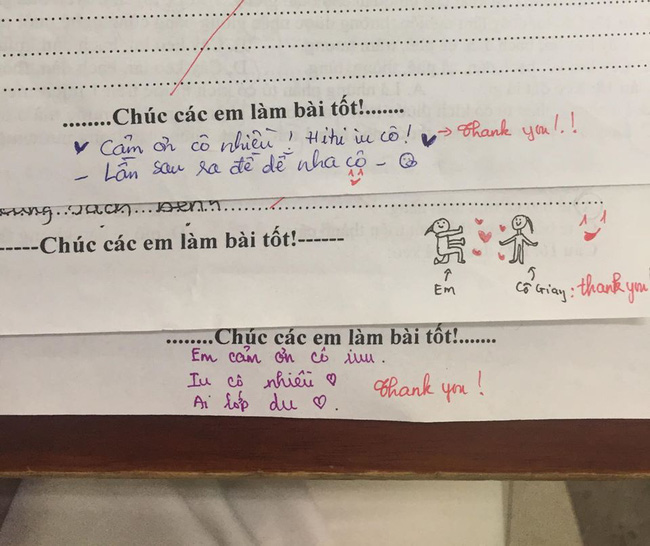 ........Chúc các em làm bài tốt!.......
Cảm ơn cô nhiều! Hihi iu cô! → Thank you!!
- Lần sau ra đề dễ nha cô -
-----Chúc các em làm bài tốt!------
Em Cô Giay: thank you!
........Chúc các em làm bài tốt!.......
Em cảm ơn cô iuu.
Iu cô nhiều ♡ Thank you!
Ai lớp du ♡.